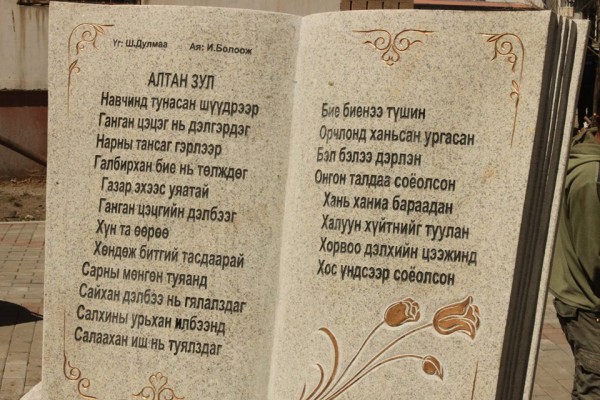 Үг: Ш.Дулмаа Ая: И.Болоож
АЛТАН ЗУЛ
Навчинд тунасан шүүдрээр
Ганган цэцэг нь дэлгэрдэг
Нарны тансаг гэрлээр
Галбирхан бие нь төлждөг
Газар эхээс уяатай
Ганган цэцгийн дэлбээг
Хүн та өөрөө
Хөндөж битгий тасдаарай
Сарны мөнгөн туяанд
Сайхан дэлбээ нь гялалздаг
Салхины урьхан илбээнд
Салаахан иш нь туялздаг
Бие биенээ түшин
Орчлонд ханьсан ургасан
Бэл бэлээ дэрлэн
Онгон талдаа соёолсон
Хань ханиа бараадан
Халуун хүйтнийг туулан
Хорвоо дэлхийн цээжинд
Хос үндсээр соёолсон